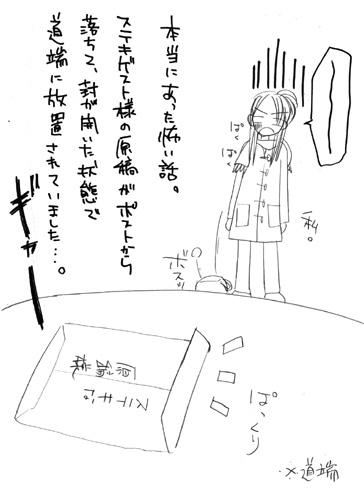 本当にあった怖い話。
ステキゲスト様の原稿がポストから
落ちて、封が開いた状態で
道端に放置されていました…。
ギャーーー
ぱくぱく
私。
ボスッ
ぱっくり
ステキゲスト
原稿
※道端